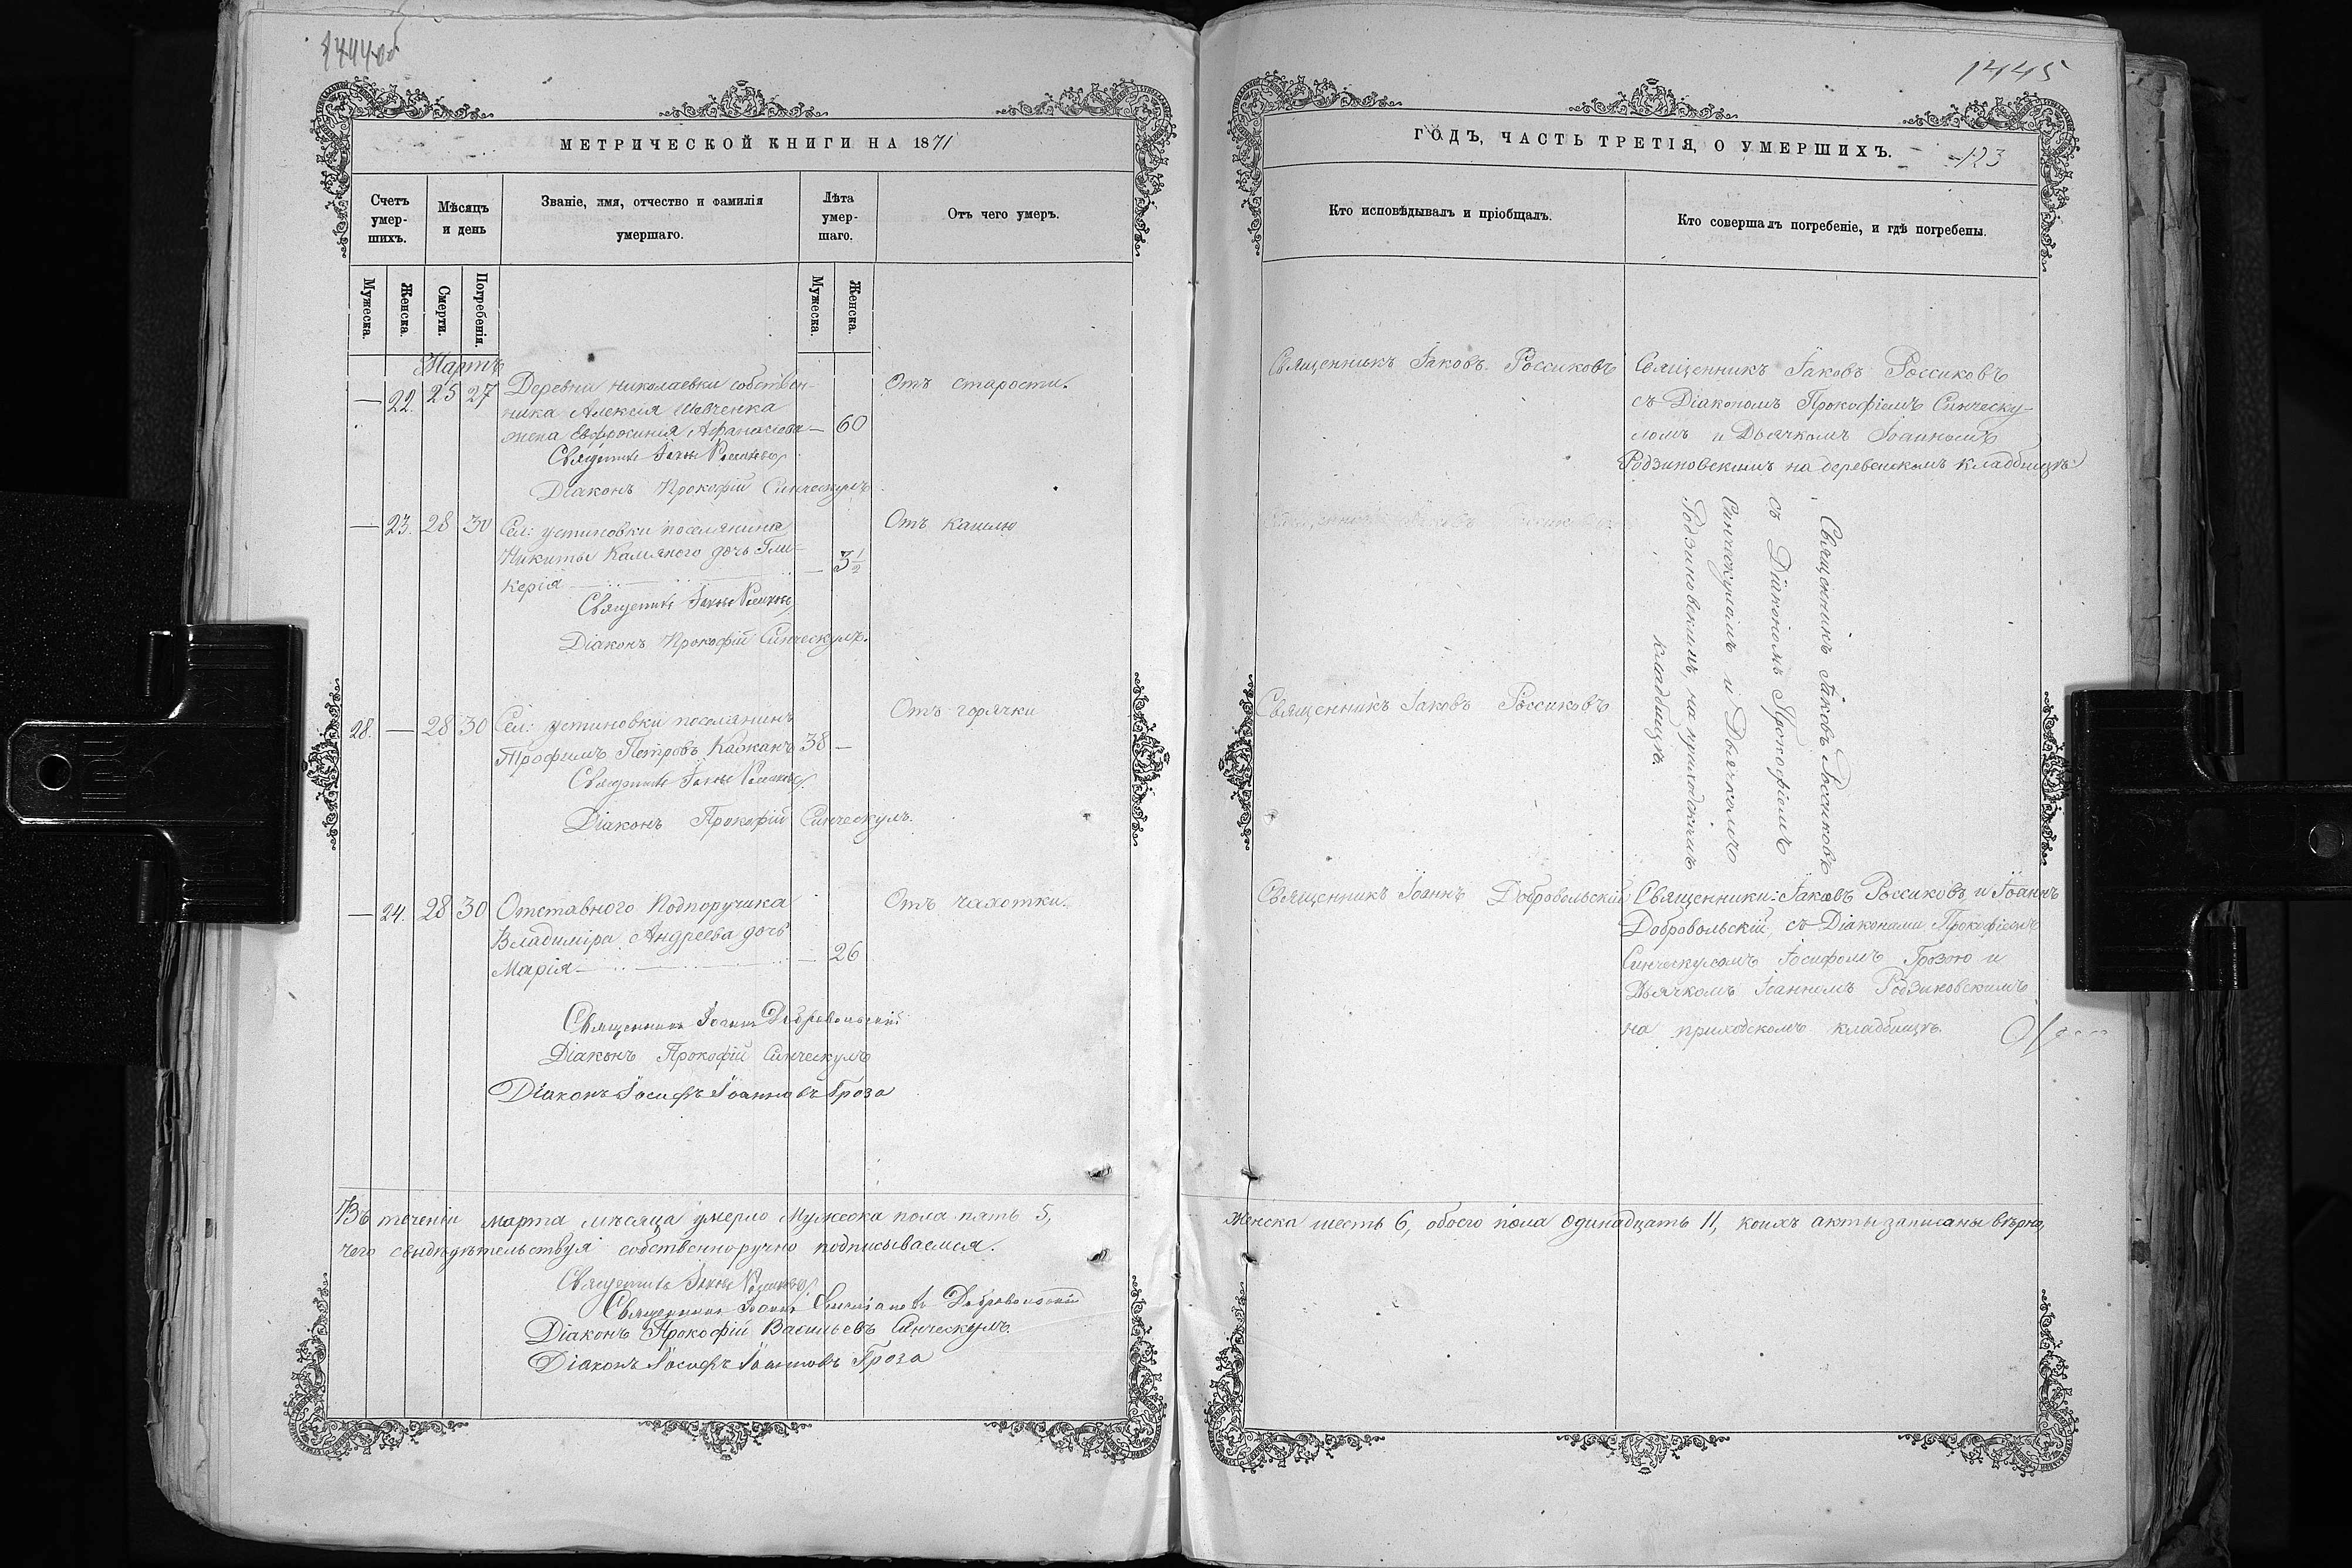 1444об
МЕТРИЧЕСКОЙ КНИГИ НА 1871
Счетъ умер-шихъ.
Мѣсяцъ и день
Званіе, имя, отчество и фамилія умершаго.
Лѣта умер-шаго.
Отъ чего умеръ.
Мужеска.
Женска.
Смерти.
Погребенія.
Мужеска.
Женска.
Мартъ
— 22. 25 27 Деревни Николаевки собствен- Отъ старости.
ника Алексія Шевченка
жена Евфросинія Афанасіева — 60
Священникъ Іаковъ Россиковъ
Діаконъ Прокофій Синческулъ
— 23. 28 30 Сел: Устиновки поселянина Отъ кашлю
Никиты Каляного дочь Гли-
керія — 3 1/2
Священникъ Іаковъ Россиковъ
Діаконъ Прокофій Синческулъ.
28. — 28 30 Сел: Устиновки поселянинъ Отъ горячки
Трофимъ Петровъ Кажанъ 38 —
Священникъ Іаковъ Россиковъ
Діаконъ Прокофій Синческулъ.
— 24. 28 30 Отставного Подпоручика Отъ чахотки.
Владиміра Андреева дочь
Марія — 26
Священникъ Іоаннъ Добровольскій
Діаконъ Прокофій Синческулъ
Діаконъ Іосифъ Іоанновъ Гроза
Въ теченіи марта мѣсяца умерло Мужеска пола пять 5,
чего свидѣтельствуя собственноручно подписываемся.
Священникъ Іаковъ Россиковъ
Священникъ Іоаннъ Добровольскій
Діаконъ Прокофій Васильевъ Синческулъ.
Діаконъ Іосифъ Іоанновъ Гроза
1445
ГОДЪ, ЧАСТЬ ТРЕТІЯ, О УМЕРШИХЪ.
123
Кто исповѣдывалъ и пріобщалъ.
Кто совершалъ погребеніе, и гдѣ погребены.
Священникъ Іаковъ Россиковъ
Священникъ Іаковъ Россиковъ
съ Діакономъ Прокофіемъ Синческу-
ломъ и Дьячкомъ Іоанномъ
Родзиновскимъ на деревенскомъ кладбищѣ
Священникъ Іаковъ Россиковъ
съ Діакономъ Прокофіемъ
Синческуломъ и Дьячкомъ
Родзиновскимъ, на приходскомъ
кладбищѣ.
Священникъ Іаковъ Россиковъ
Священникъ Іоаннъ Добровольскій
Священники: Іаковъ Россиковъ и Іоаннъ
Добровольскій, съ Діаконами Прокофіемъ
Синческуломъ Іосифомъ Грозою и
Дьячкомъ Іоанномъ Родзиновскимъ
на приходскомъ кладбищѣ.
Женска шесть 6, обоего пола одинадцать 11, коихъ акты записаны вѣрно,